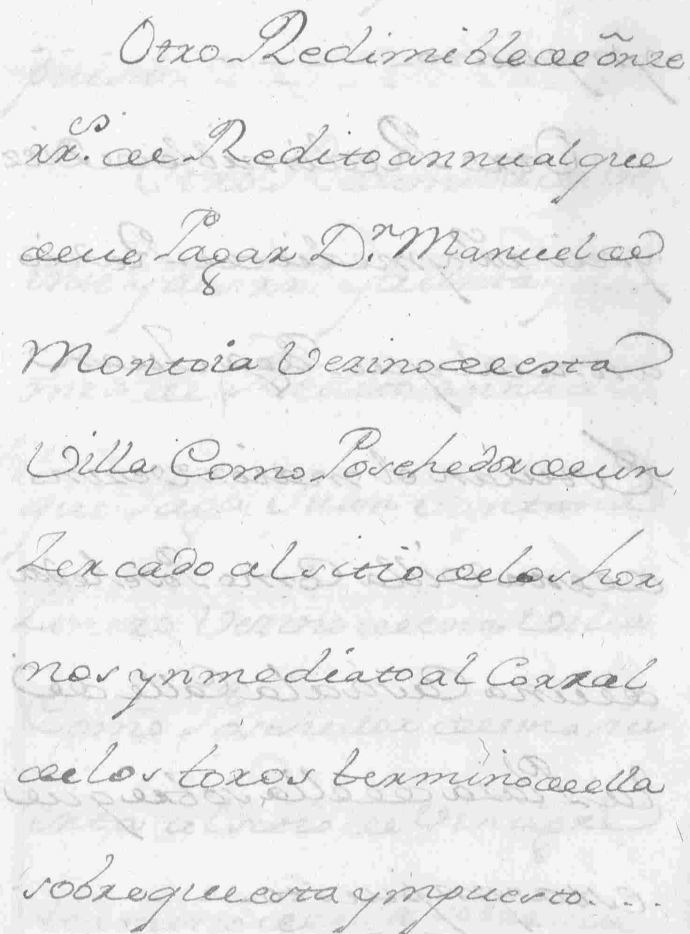 Otro Redimible de ônze
rr.s de Redito annual que
deue Pagar D.n Manuel de
Montoia Vezino de esta
Villa Como Posehedor de un
Zercado al sitio de los hor
nos ynmediato al Corral
de los toros termino de ella
sobre que esta ympuesto. . .